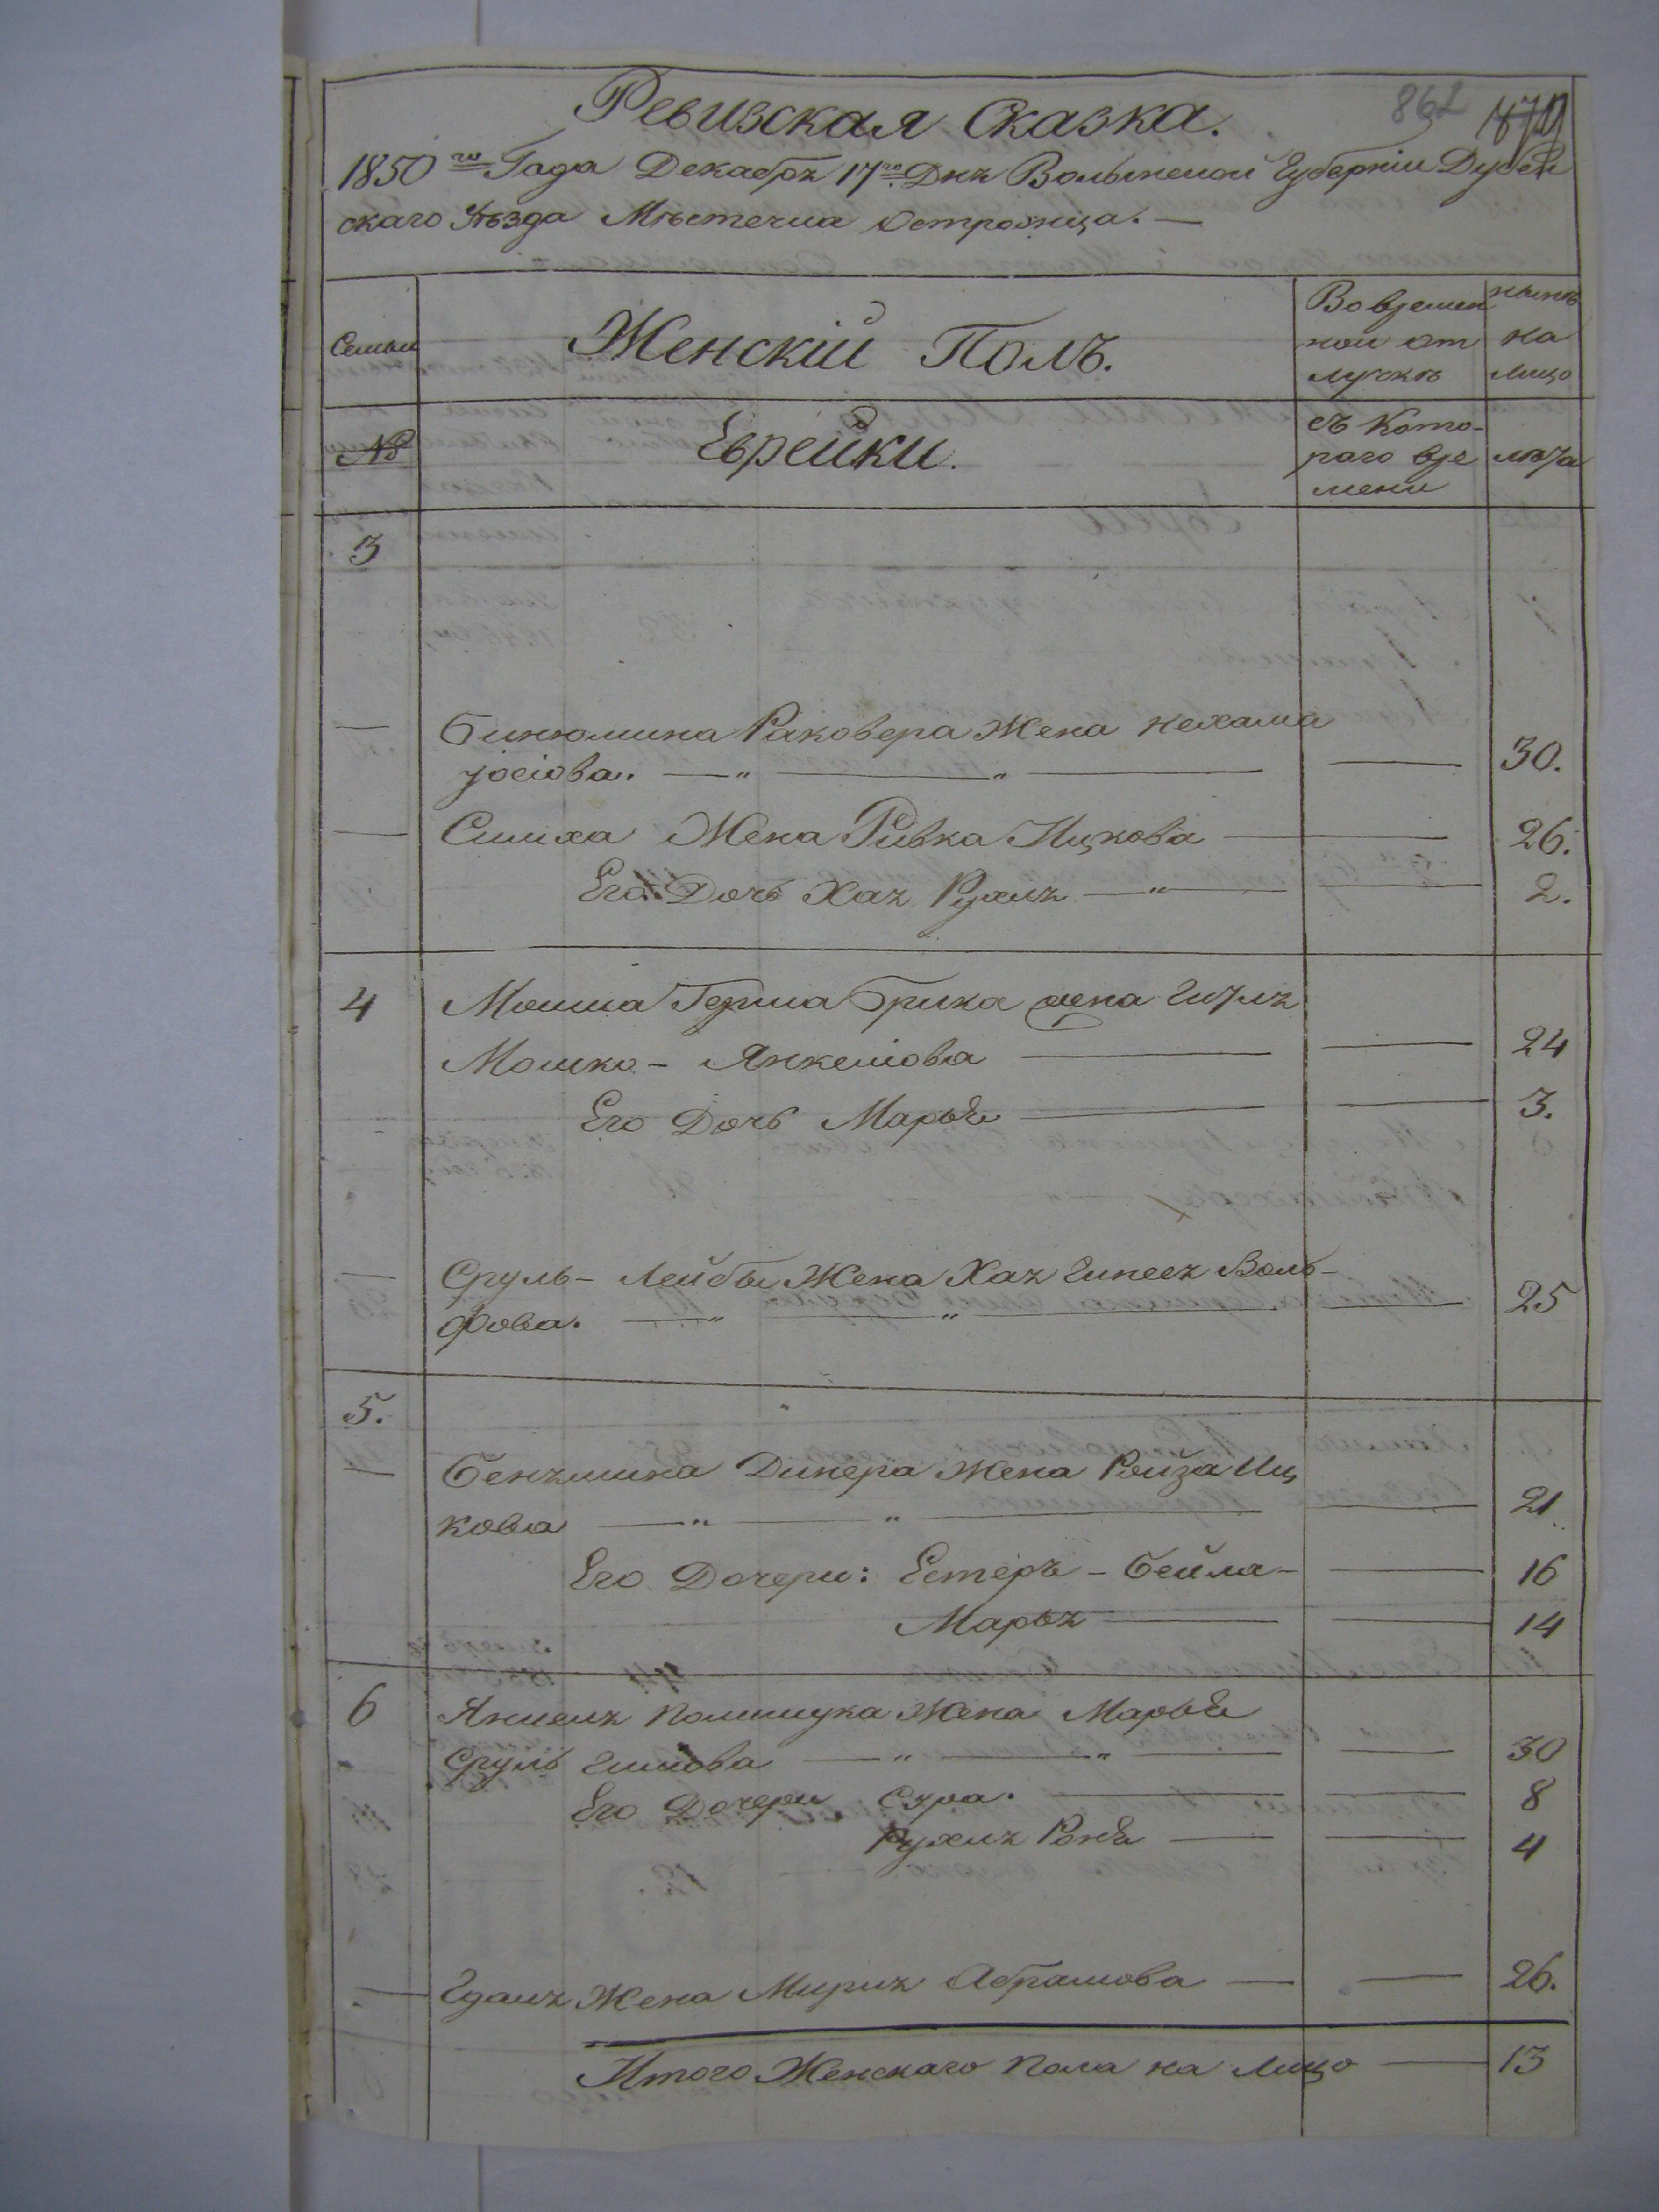 862 879
Ревизская Сказка.
1850го Года Декабря 17го Дня Волынской Губерніи Дубен
скаго Уѣзда Мѣстечка Острожца. —
Семьи
Женскій Полъ.
Во времен
ной от
лучкѣ
нынѣ
на
лицо
№
Еврейки.
съ кото-
раго вре
мени
лѣта
3
— Бинюмина Раковера Жена Нехама
Јосіова. — „ — „ — — 30.
— Симха Жена Ривка Ицкова — — 26.
Его Дочь Хая Рухля — „ — — 2.
4 Мошка Герша Брика жена Гитля
Мошко - Янкеліова — — 24
Его Дочь Марья — — 3.
— Сруль - Лейбы Жена Хая Гинеся Воль-
фова. — „ — „ — — 25
5.
— Бенямина Динера Жена Ройза Иц
кова — „ — „ — — 21
Его Дочери: Естеръ - Бейла - — 16
Марья — — 14
6 Янкеля Полищука Жена Марья
Сруль — „ — „ — — 30
Его Дочери Сура. — — 8
Рухля Реня — — 4
— Жена Мирія Абрамова — — 26.
Итого Женскаго Пола на Лицо — 13